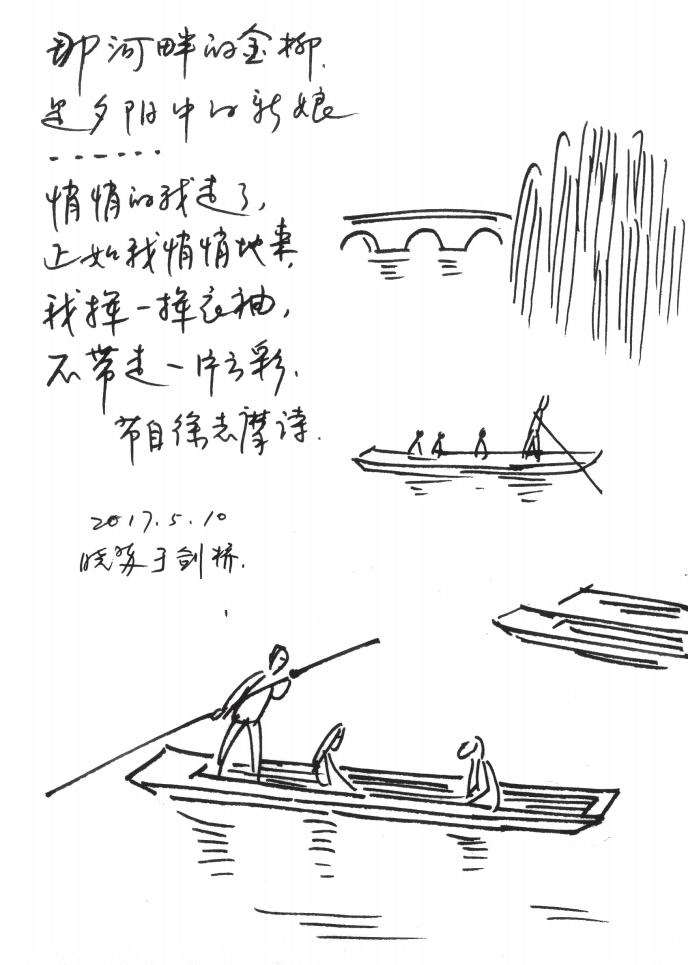 那河畔的金柳,
是夕阳中的新娘
.......
悄悄的我走了,
正如我悄悄地来,
我挥一挥衣袖,
不带走一片云彩.
节自徐志摩诗.
2017.5.10
晓苏于剑桥.